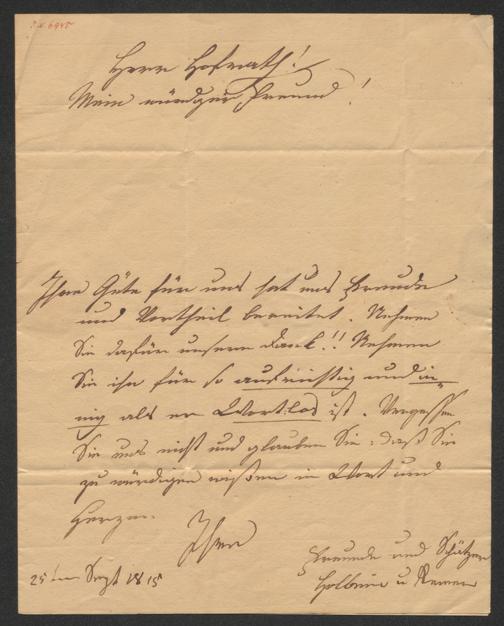 Herr Hofrath!
Mein würdger Freund!
Ihre Güte für uns hat uns Freude
und Vortheil bereitet. Nehmen
Sie dafür unsern Dank!! Nehmen
Sie ihn für so aufrichtig und in-
nig als er Wortlos ist. Vergessen
Sie uns nicht und glauben Sie: daß Sie
zu würdigen wißen in Wort und
Herzen
Ihre
Freunde und Schützer
Holbein u Renner
25 Sept 1815